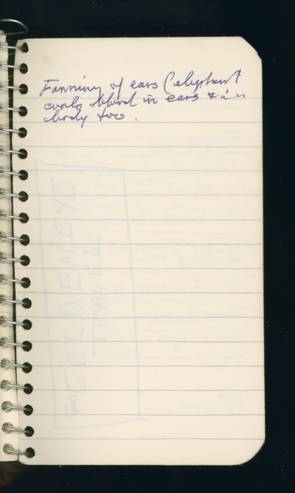 Fanning of ears (elephant
cools blood in ears & in
body too.
GOLDENEYE
TRAVEL